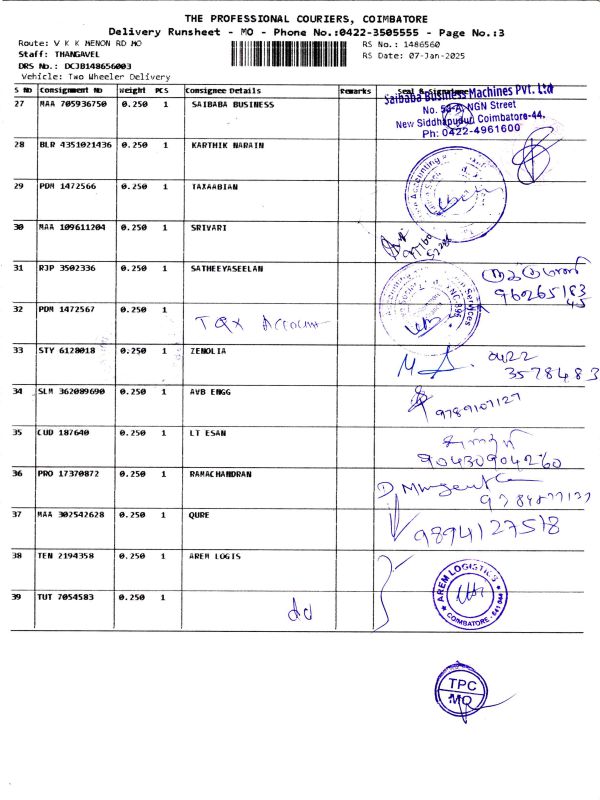 THE PROFESSIONAL COURIERS, COIMBATORE
Delivery Runsheet - MO - Phone No.:0422-3505555 - Page No.:3
Route: V K K MENON RD MO
RS No.: 1486560
Staff: THANGAVEL
RS Date: 07-Jan-2025
DRS No.: DCJB148656003
Vehicle: Two Wheeler Delivery
S No Consignment No Weight PCS Consignee Details Remarks Seal & Signature
27 MAA 705936750 0.250 1 SAIBABA BUSINESS
Saibaba Business Machines Pvt. Ltd
No. 59-A, NGN Street
New Siddhapudur, Coimbatore-44.
Ph: 0422-4961600
28 BLR 4351021436 0.250 1 KARTHIK NARAIN
29 PDM 1472566 0.250 1 TAXAABIAN
30 MAA 109611204 0.250 1 SRIVARI
31 RJP 3502336 0.250 1 SATHEEYASEELAN
32 PDM 1472567 0.250 1 Tax Account
33 STY 6128018 0.250 1 ZENOLIA 0422
3578483
34 SLM 362089690 0.250 1 AVB ENGG 9789107127
35 CUD 187640 0.250 1 LT ESAN
36 PRO 17370872 0.250 1 RAMACHANDRAN
37 MAA 302542628 0.250 1 QURE 9894127518
38 TEN 2194358 0.250 1 AREM LOGIS
AREM LOGISTICS
COIMBATORE - 641 044
39 TUT 7054583 0.250 1 dd
TPC
MO